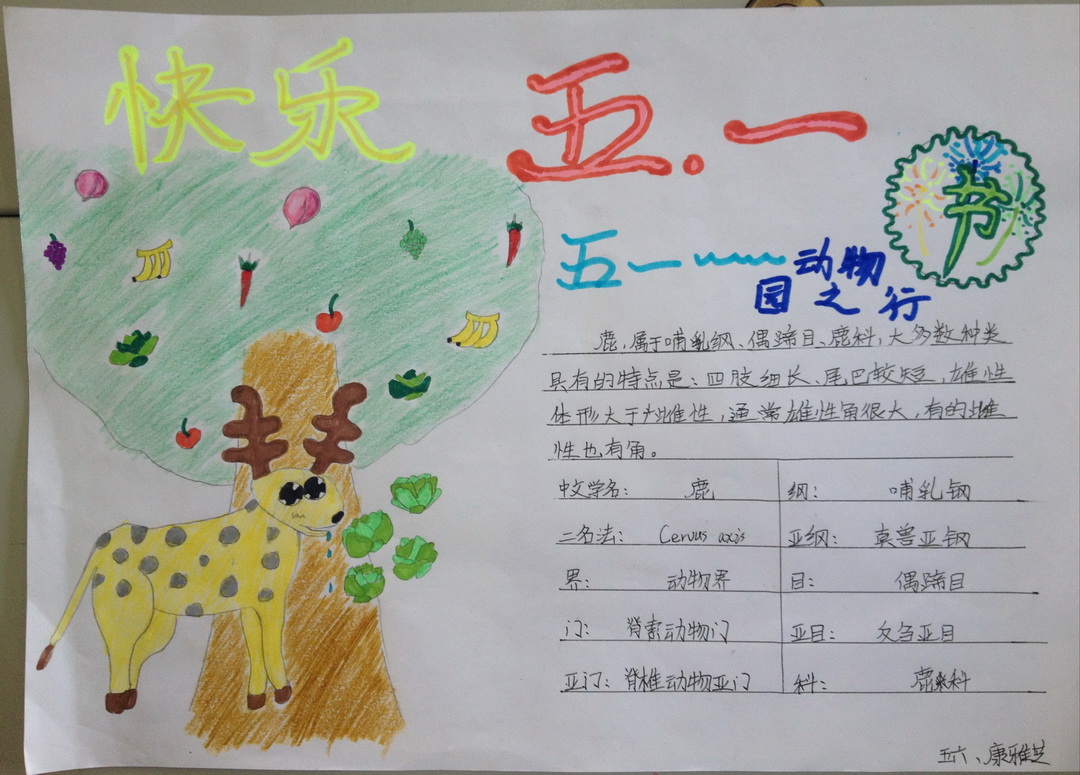 快乐 五.一
节
五一~~~动物
园之行
鹿,属于哺乳纲、偶蹄目、鹿科,大多数种类
具有的特点是:四肢细长、尾巴较短,雄性
体形大于雌性,通常雄性角很大,有的雌
性也有角。
中文学名: 鹿 纲: 哺乳钢
二名法: Cervus axis 亚纲: 真兽亚钢
界: 动物界 目: 偶蹄目
门: 脊索动物门 亚目: 反刍亚目
亚门: 脊椎动物亚门 科: 鹿科
五六、康雅芝